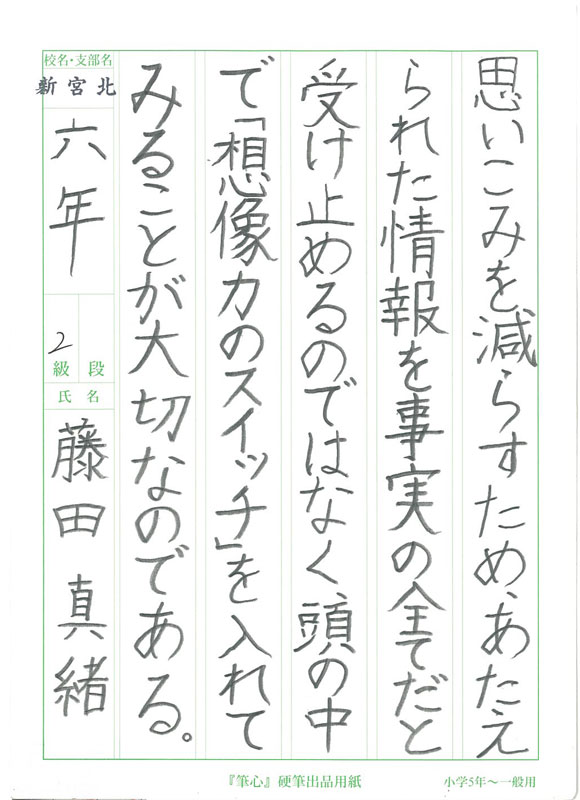 思いこみを減らすため、あたえ
られた情報を事実の全てだと
受け止めるのではなく、頭の中
で「想像力のスイッチ」を入れて
みることが大切なのである。
校名・支部名
新宮北
六年
2
級 段
氏 名
藤田 真緒
『筆心』硬筆出品用紙
小学5年〜一般用